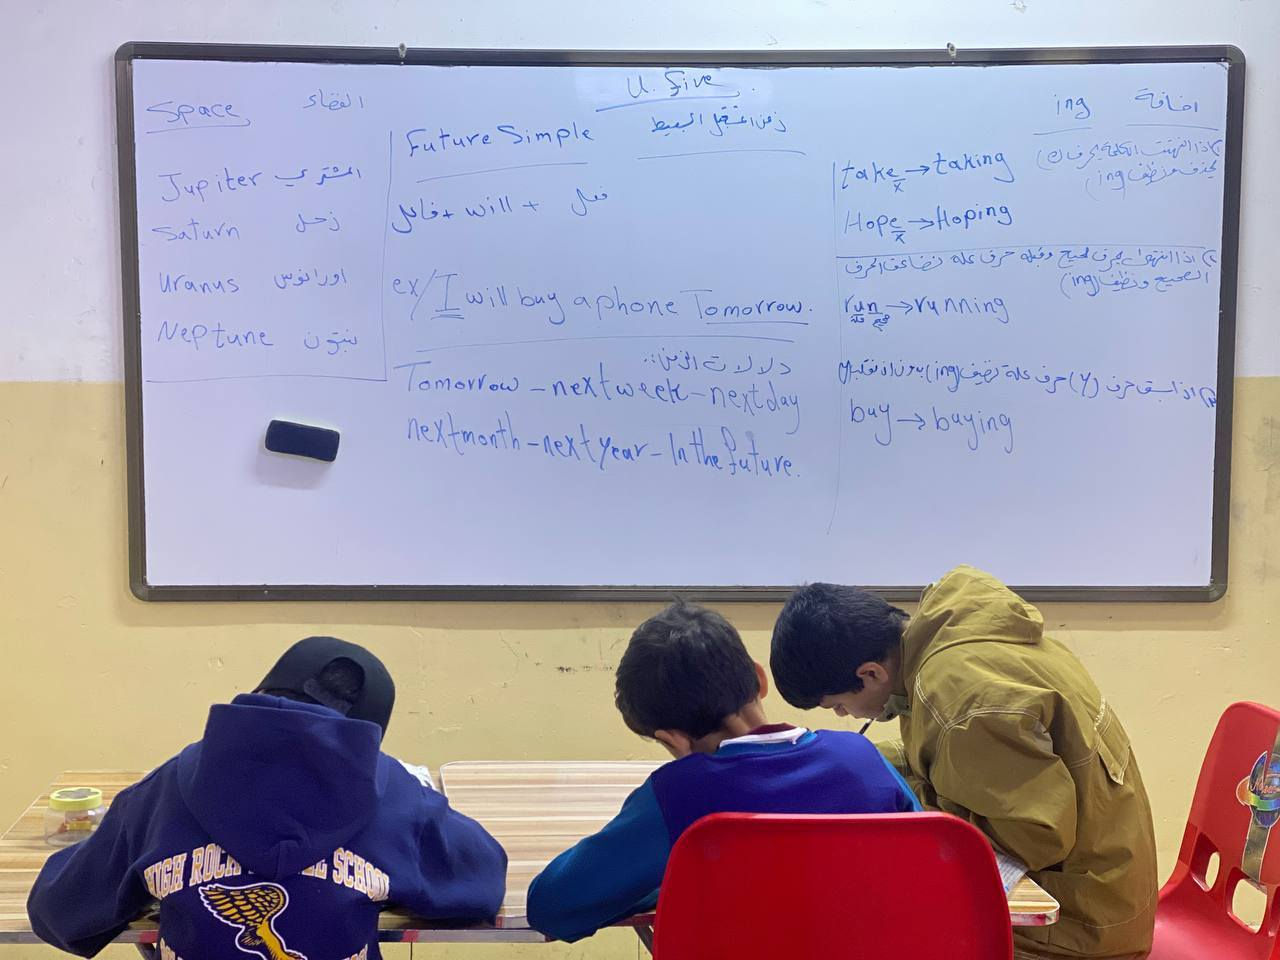 U. Five.
Space الفضاء
Jupiter المشتري
Saturn زحل
Uranus اورانوس
Neptune نبتون
Future Simple زمن المستقبل البسيط
فاعل + will + فعل
ex/ I will buy a phone Tomorrow.
دلالات الزمن:
Tomorrow - next week - next day
next month - next year - In the future.
اضافة ing
اذا انتهت الكلمة بحرف e
يحذف ونضيف (ing)
take → taking
x
Hope → Hoping
x
اذا انتهت بحرف صحيح وقبله حرف علة نضاعف الحرف
الصحيح ونضيف (ing)
run → running
علة صحيح
اذا سبق حرف (y) حرف علة نضيف (ing) بدون
buy → buying
HIGH ROCK SCHOOL